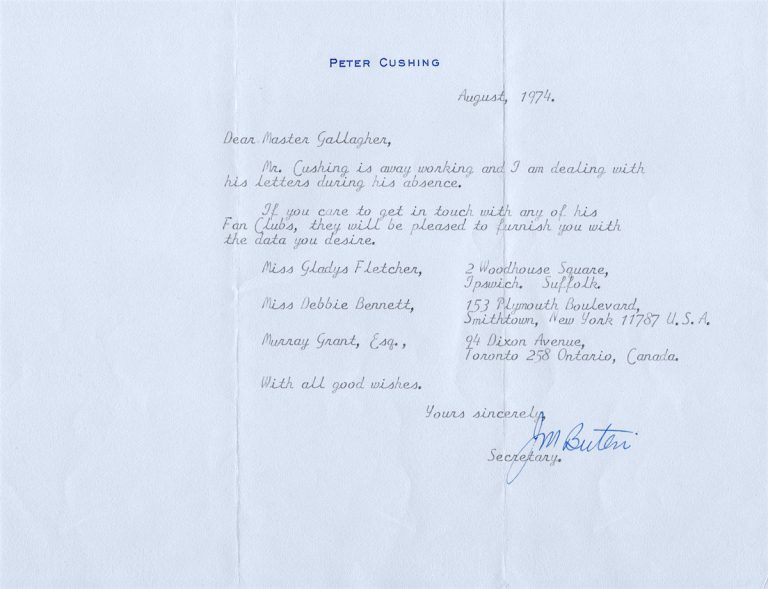 PETER CUSHING
August, 1974.
Dear Master Gallagher,
Mr. Cushing is away working and I am dealing with
his letters during his absence.
If you care to get in touch with any of his
Fan Clubs, they will be pleased to furnish you with
the data you desire.
Miss Gladys Fletcher, 2 Woodhouse Square,
Ipswich. Suffolk.
Miss Debbie Bennett, 153 Plymouth Boulevard,
Smithtown, New York 11787 U.S.A.
Murray Grant, Esq., 94 Dixon Avenue,
Toronto 258 Ontario, Canada.
With all good wishes.
Yours sincerely,
Secretary.